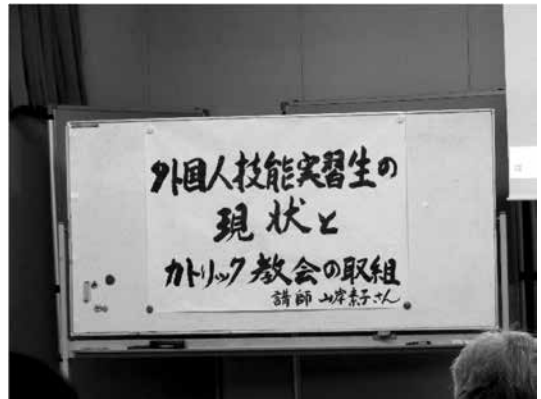 外国人技能実習生の
現状と
カトリック教会の取組
講師 山岸素子さん